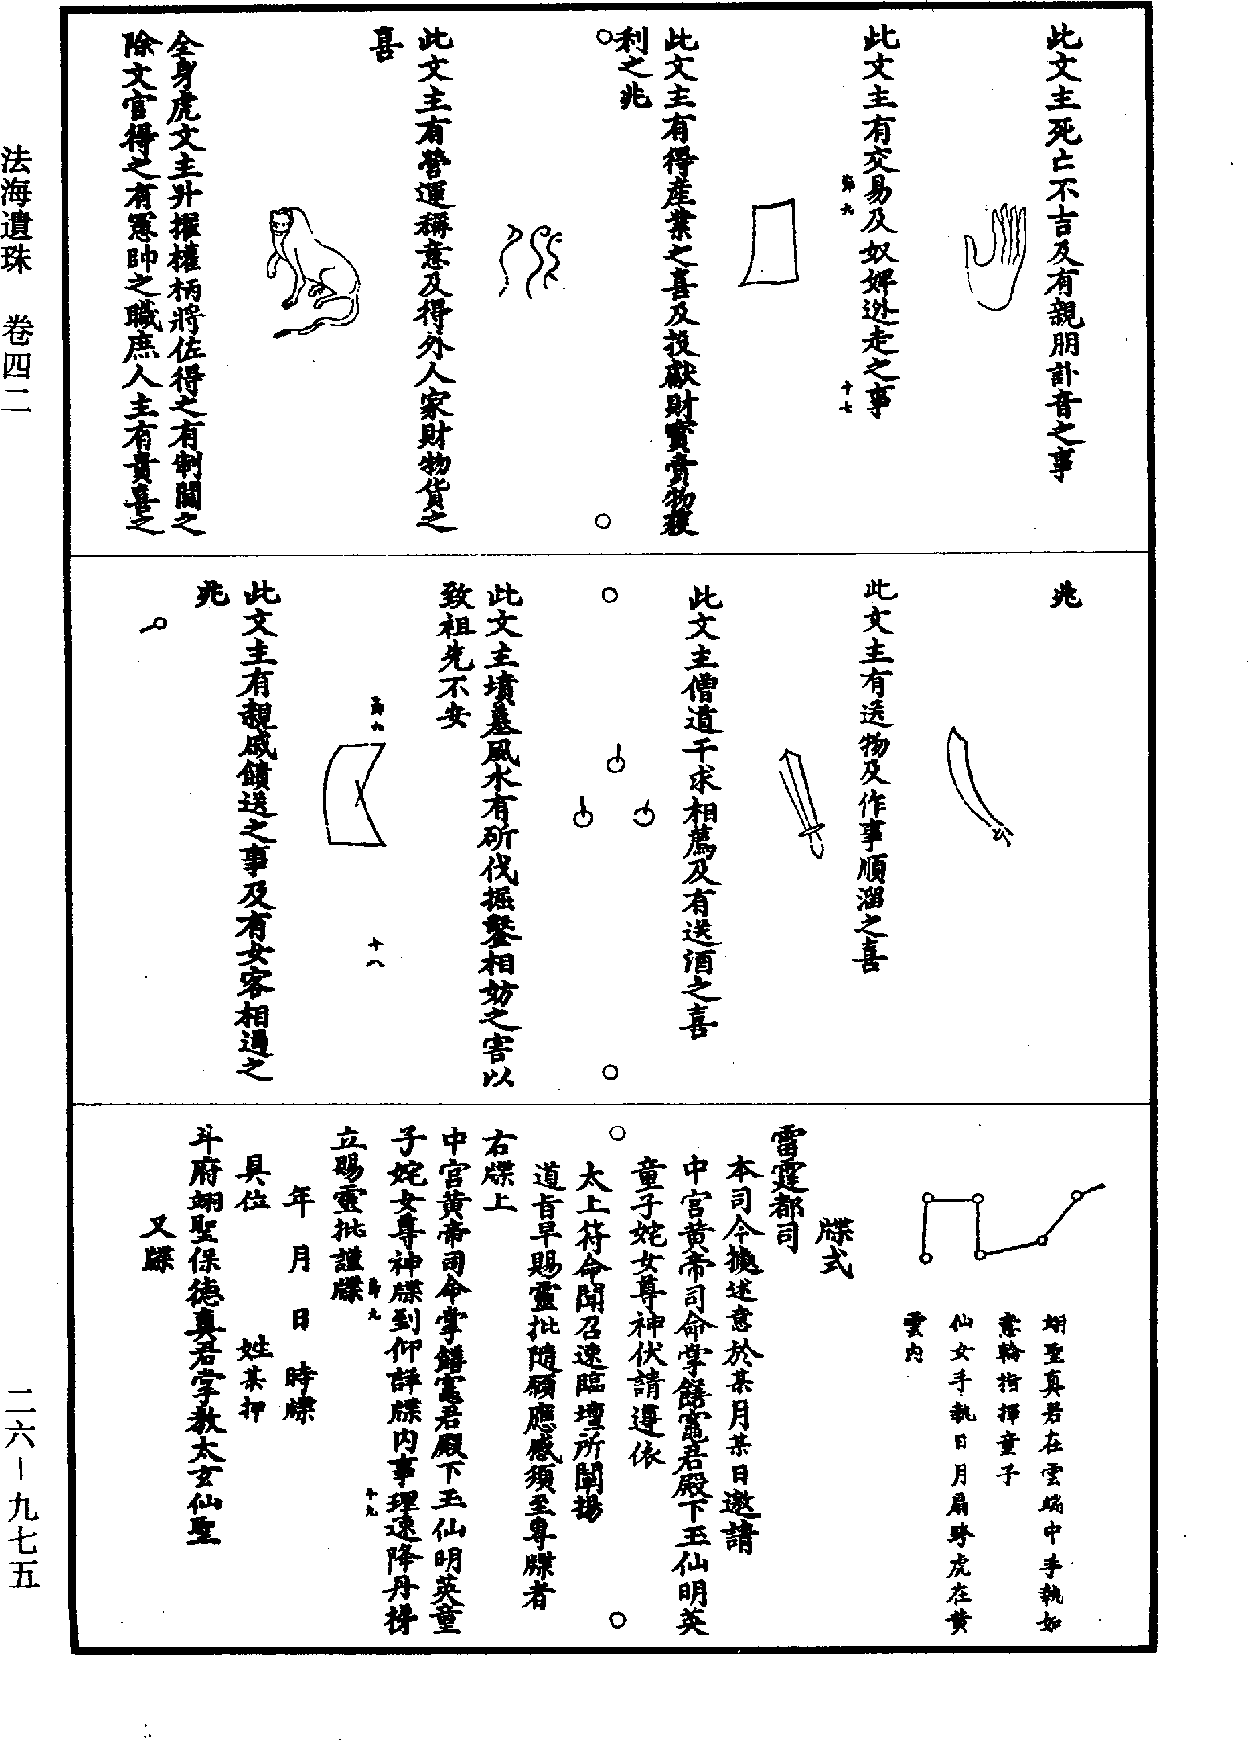 此文主死亡不吉及有親朋訃音之事
此文主有交易及奴婢迯走之事
弟九 十七
此文主有得產業之喜及投獻財寶賣物獲
利之兆
此文主有營運稱意及得外人家財物貨之
喜
全身虎文主升擢權柄將佐得之有制閫之
除文官得之有憲帥之職庶人主有貴喜之
兆
此文主有送物及作事順溜之喜
此文主僧道干求相薦及有送酒之喜
此文主墳墓風水有斫伐掘鑿相妨之害以
致祖先不安
弟九 十八
此文主有親戚饋送之事及有女客相過之
兆
翊聖真君在雲端中手執如
意輪指揮童子
仙女手執日月扇跨虎在黃
雲內
牒式
雷霆都司
本司今據述意於某月某日邀請
中宮黃帝司命掌饍竈君殿下玉仙明英
童子姹女尊神伏請遵依
太上符命聞召速臨壇所闡揚
道旨早賜靈批隨願應感須至專牒者
右牒上
中宮黃帝司命掌饍竈君殿下玉仙明英童
子姹女尊神牒到仰詳牒內事理速降丹悌
弟九 十九
立賜靈批謹牒
年 月 日 時牒
具位 姓某押
斗府翊聖保德真君掌教太玄仙聖
又牒
法海遺珠 卷四二
二六－九七五